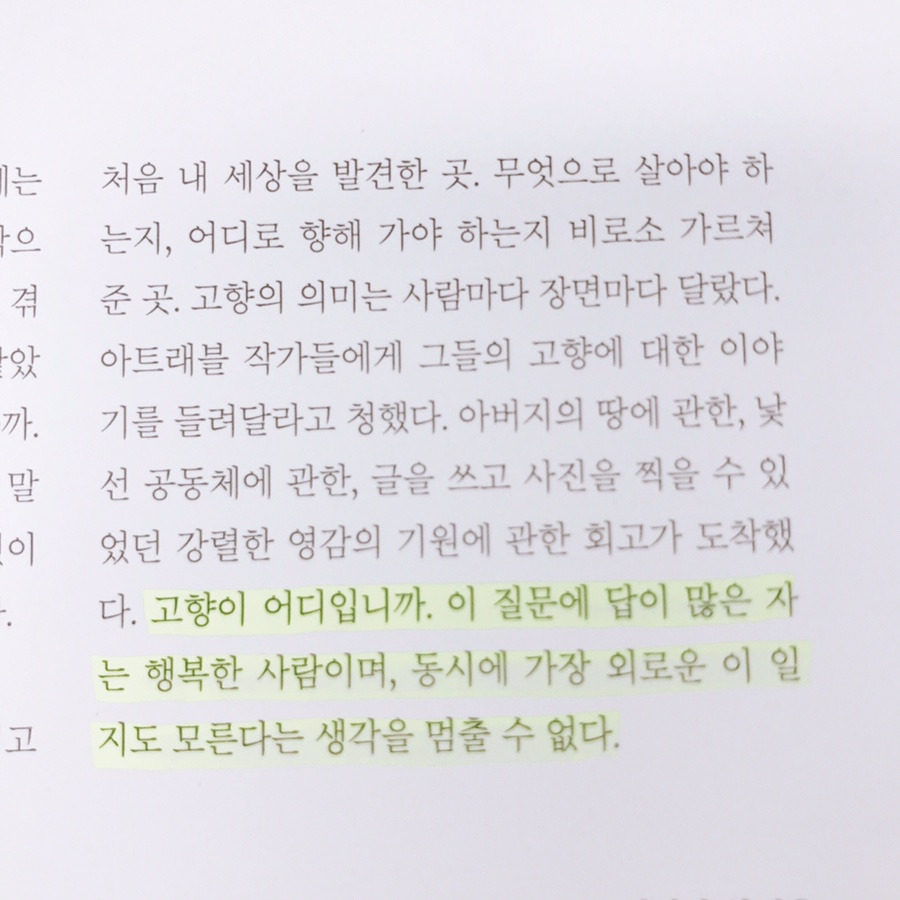 세는
각으
겪
같았
까.
말
것이
고
처음 내 세상을 발견한 곳. 무엇으로 살아야 하
는지, 어디로 향해 가야 하는지 비로소 가르쳐
준 곳. 고향의 의미는 사람마다 장면마다 달랐다.
아트래블 작가들에게 그들의 고향에 대한 이야
기를 들려달라고 청했다. 아버지의 땅에 관한, 낯
선 공동체에 관한, 글을 쓰고 사진을 찍을 수 있
었던 강렬한 영감의 기원에 관한 회고가 도착했
다. 고향이 어디입니까. 이 질문에 답이 많은 자
는 행복한 사람이며, 동시에 가장 외로운 이 일
지도 모른다는 생각을 멈출 수 없다.